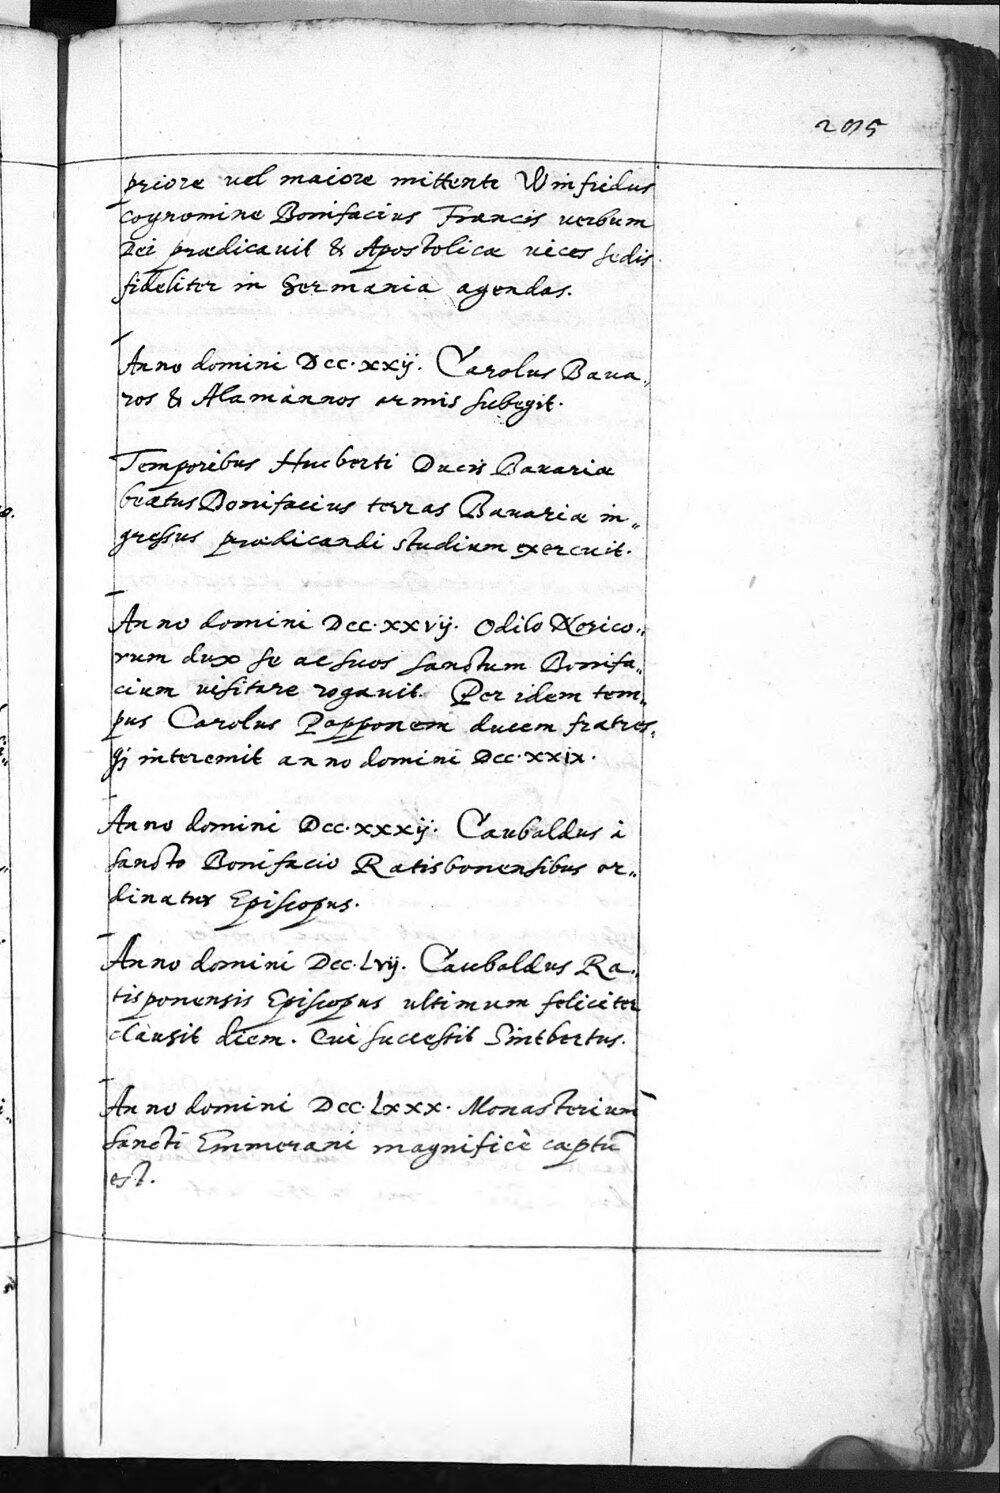 205
priore vel maiore mittente Winfridus
cognomine Bonifacius Francis verbum
Dei prædicavit & Apostolicæ vices sedis
fideliter in Germania agendas.
Anno domini Dcc.xxij. Carolus Baua„
ros & Alamannos armis subegit.
Temporibus Hucberti Ducis Bauariæ
beatus Bonifacius terras Bauariæ in„
gressus prædicandi studium exercuit.
Anno domini Dcc.xxvij. Odilo Norico„
rum dux se ac suos sanctum Bonifa„
cium visitare rogauit. Per idem tem„
pus Carolus Papponem ducem fratres„
qȝ interemit anno domini Dcc.xxix.
Anno domini Dcc.xxxij. Gaubaldus à
sancto Bonifacio Ratisbonensibus or„
dinatur Episcopus.
Anno domini Dcc.Lvij. Gaubaldus Ra„
tisponensis Episcopus ultimum feliciter
clausit diem. Cui successit Sintbertus.
Anno domini Dcc.Lxxx. Monasterium
sancti Emmerani magnificè cæptũ
est.